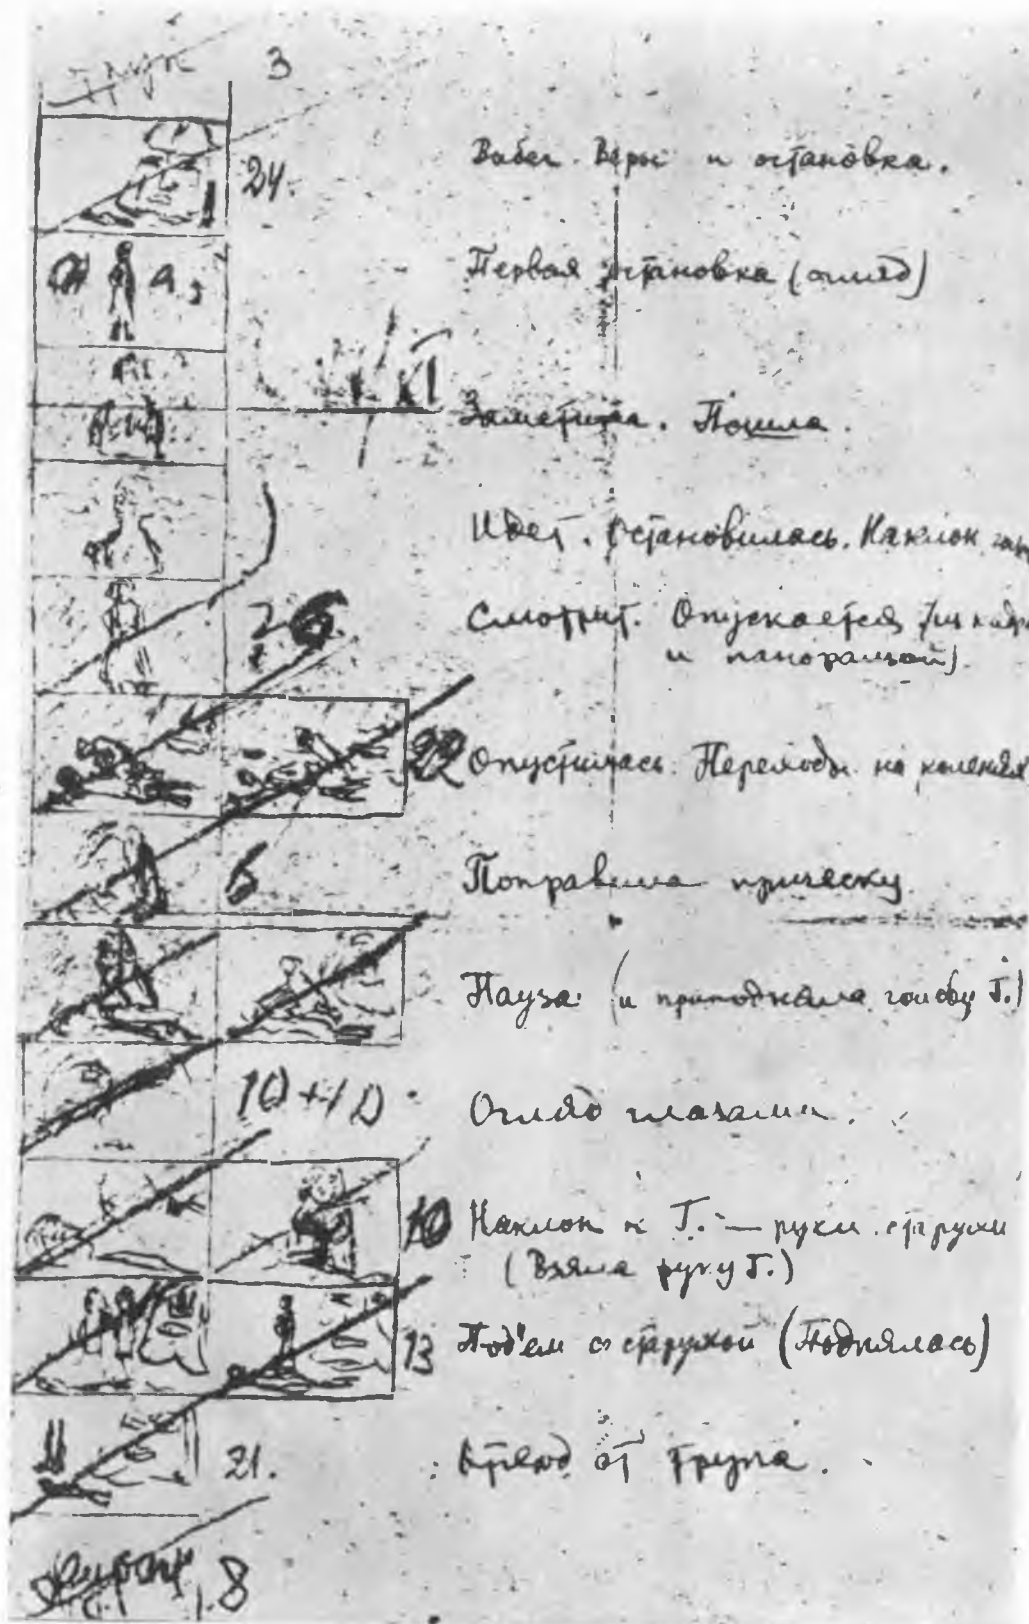 3
24. Вабег Веры и остановка.
9. Первая остановка (огляд)
Заметила. Пошла.
Идет. Остановилась. Наклон
26 Смотрит. Опускается
и панорамой)
22 Опустилась. Переходы на коленях
6 Поправила прическу.
Пауза (и приподняла голову Г.)
10+10 Огляд глазами.
10 Наклон к Г. — руки старухи
(Взяла руку Г.)
13 Под'ем со старухой (Поднялась)
21. от трупа.
8